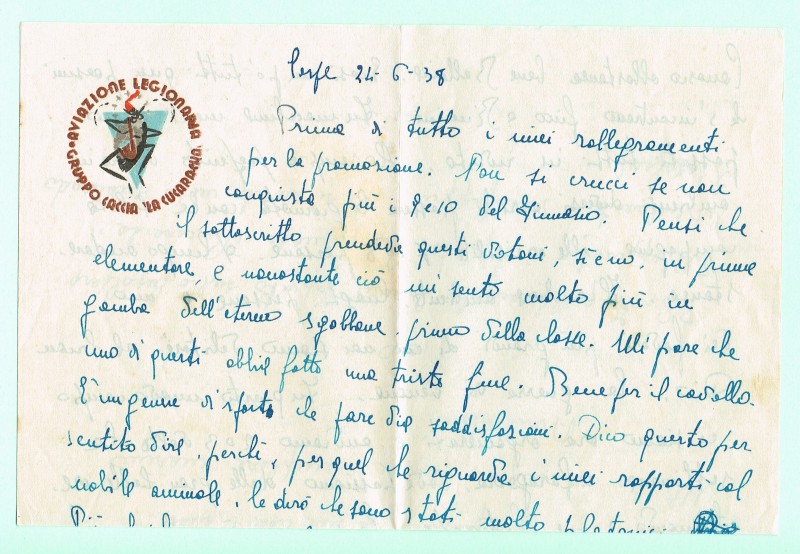 AVIAZIONE LEGIONARIA
GRUPPO CACCIA "LA CUCARACHA"
24-6-38
Prima di tutto i miei rallegramenti
per la promozione. Non si crucci se non
conquista più i 9 e 10 del Ginnasio. Pensi che
il sottoscritto prendeva questi votoni, si e no, in prima
elementare, e nonostante ciò mi sento molto più in
gamba dell'eterno sgobbone, primo della classe. Mi pare che
uno di questi abbia fatto una triste fine. Bene per il cavallo.
È un genere di sport che pare dia soddisfazioni. Dico questo per
sentito dire, perchè, per quel che riguarda i miei rapporti col
nobile animale, le dirò che sono stati molto